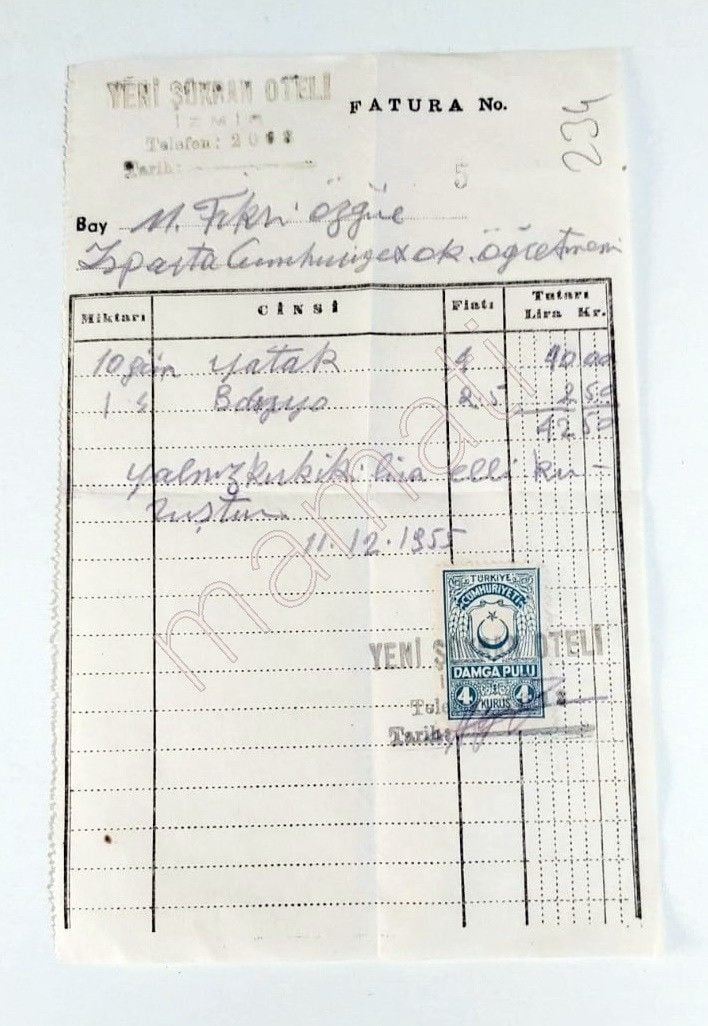 YENİ ŞÜKRAN OTELİ
İZMİR
Telefon: 20
Tarih:
FATURA No.
234
5
Bay M. Fikri Özgüc
Isparta Cumhuriyet ok. öğretmeni
Miktarı CİNSİ Fiatı Tutarı
Lira Kr.
10 gün yatak 4 40 00
1 " Banyo 2.5 2 50
42 50
yalnız kırkiki lira elli ku-
ruştur.
11.12.1955
TÜRKİYE
CUMHURİYETİ
YENİ Ş OTELİ
DAMGA PULU
4 KURUŞ 4
Tele
Tarih:
mamati